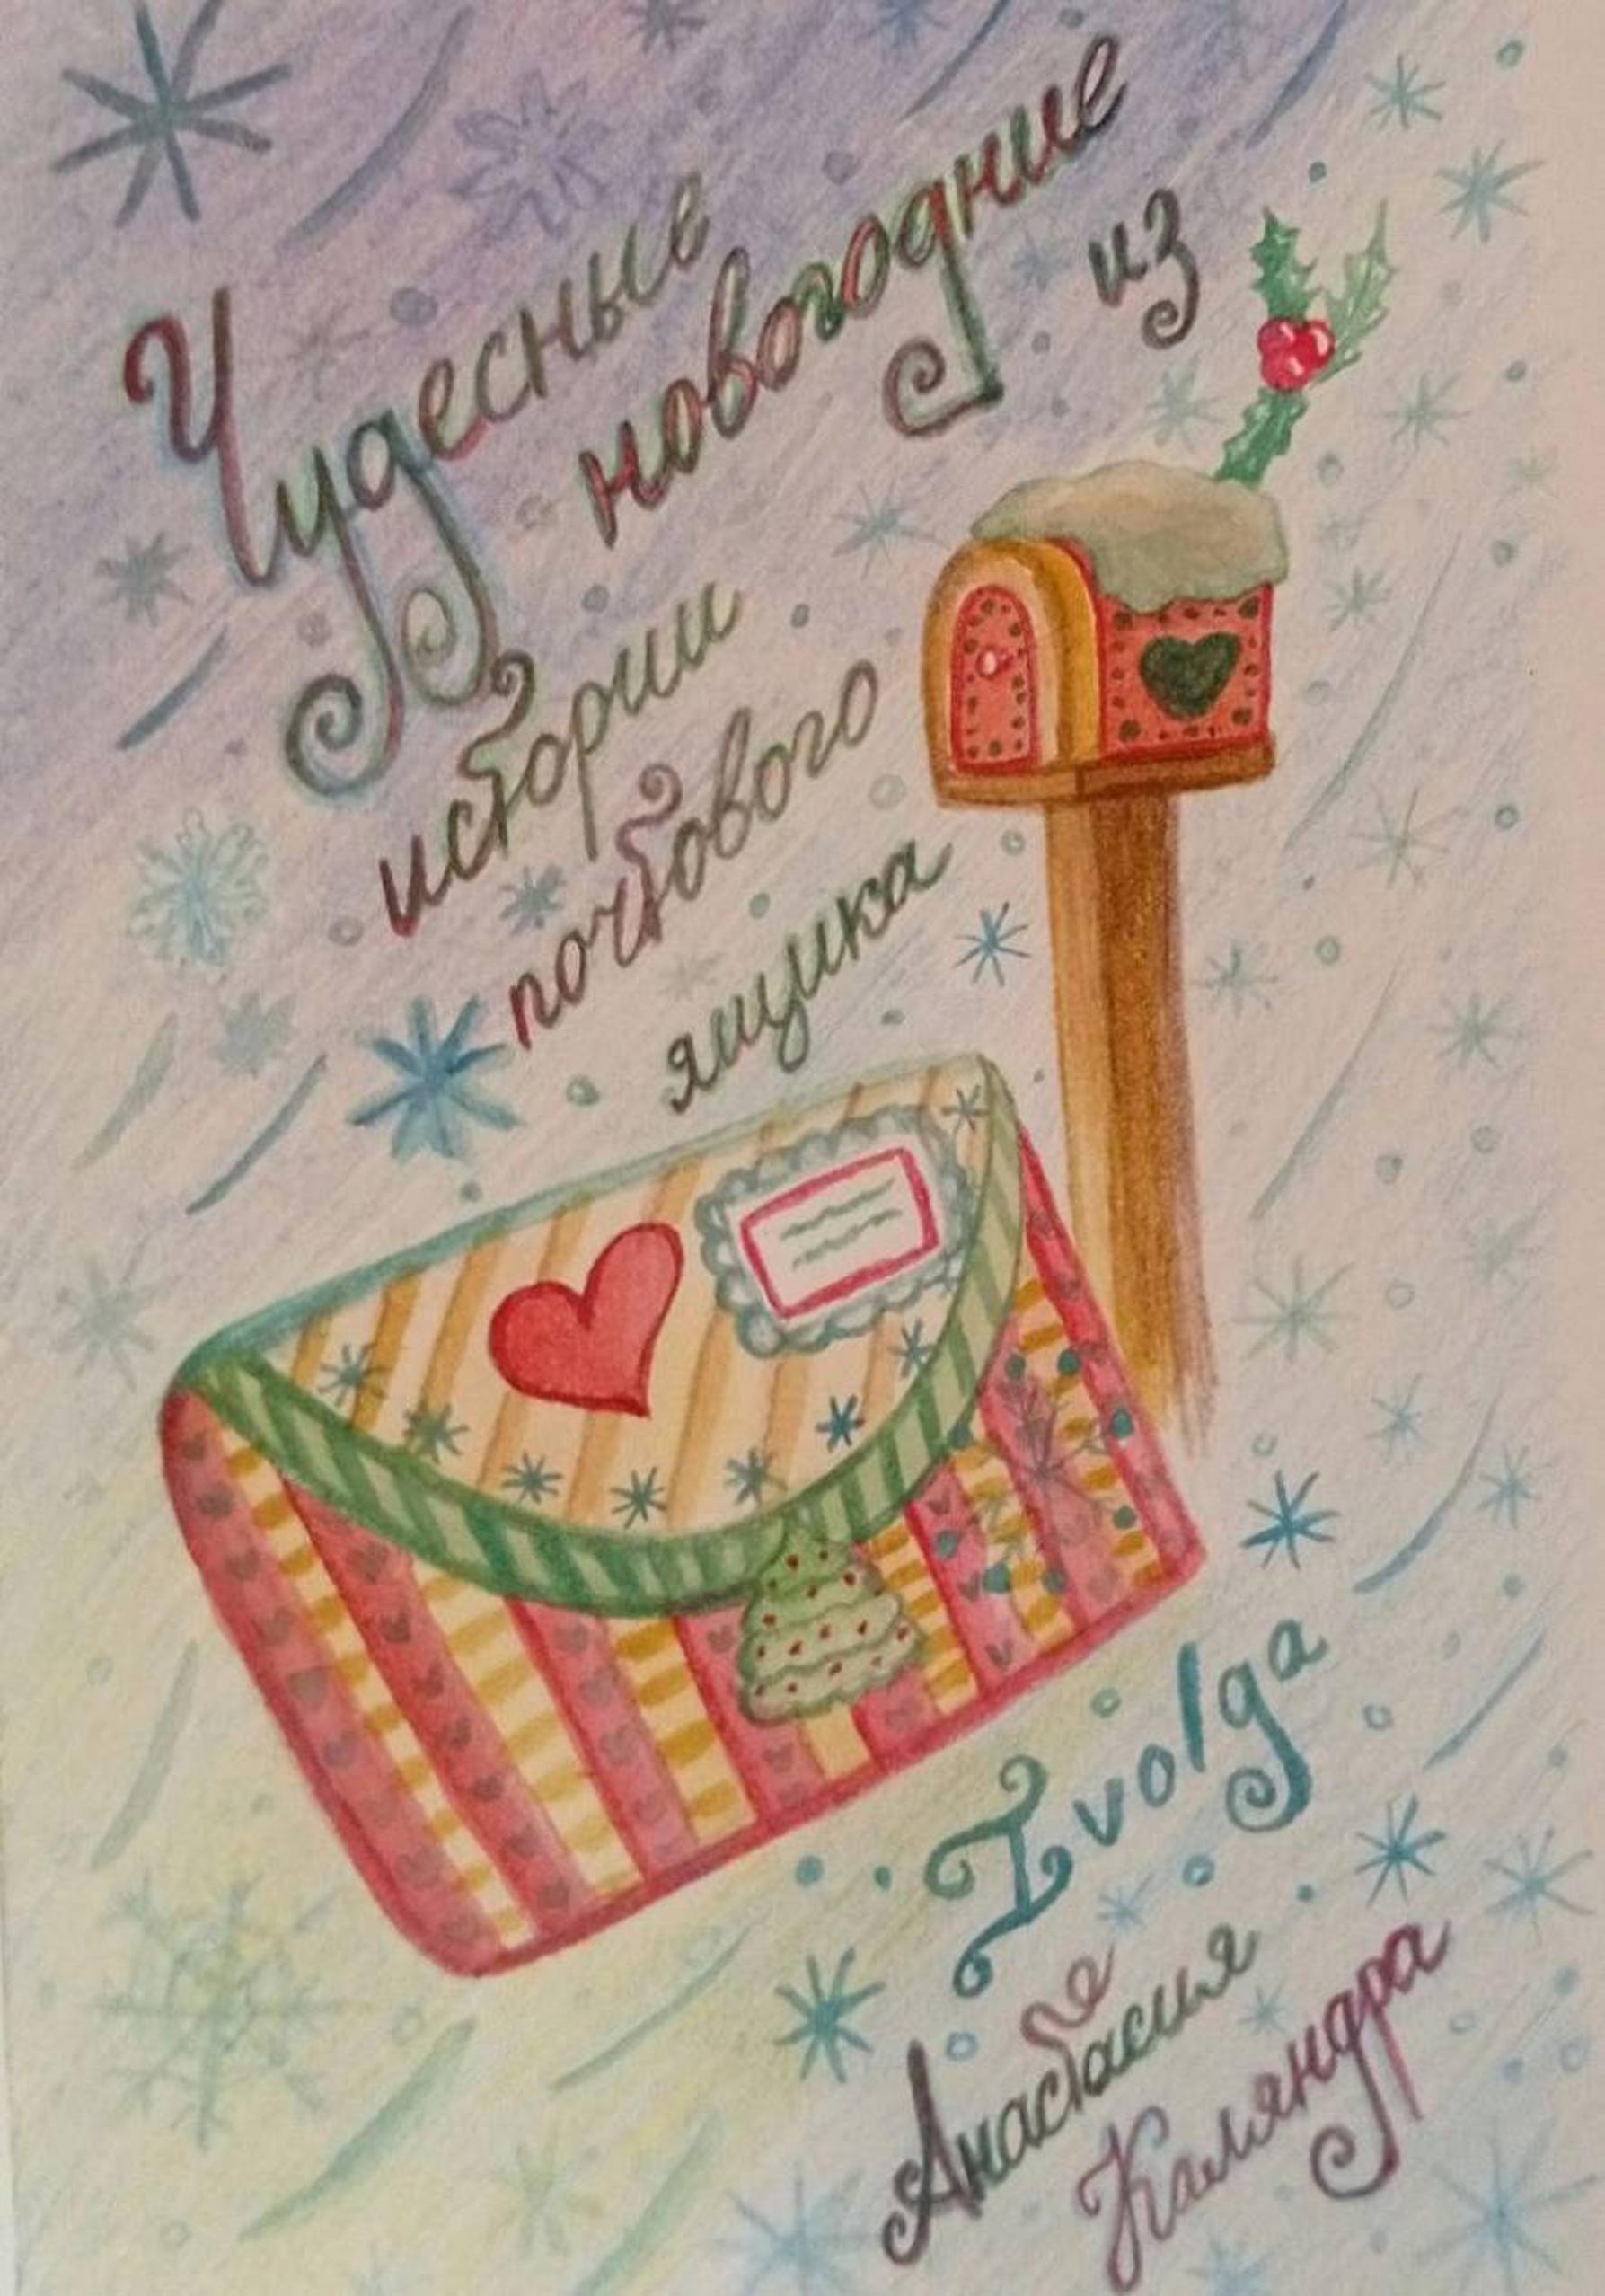 Чудесные
новогодние
истории из
почтового
ящика
Ivolga
Анастасия
Каляндра